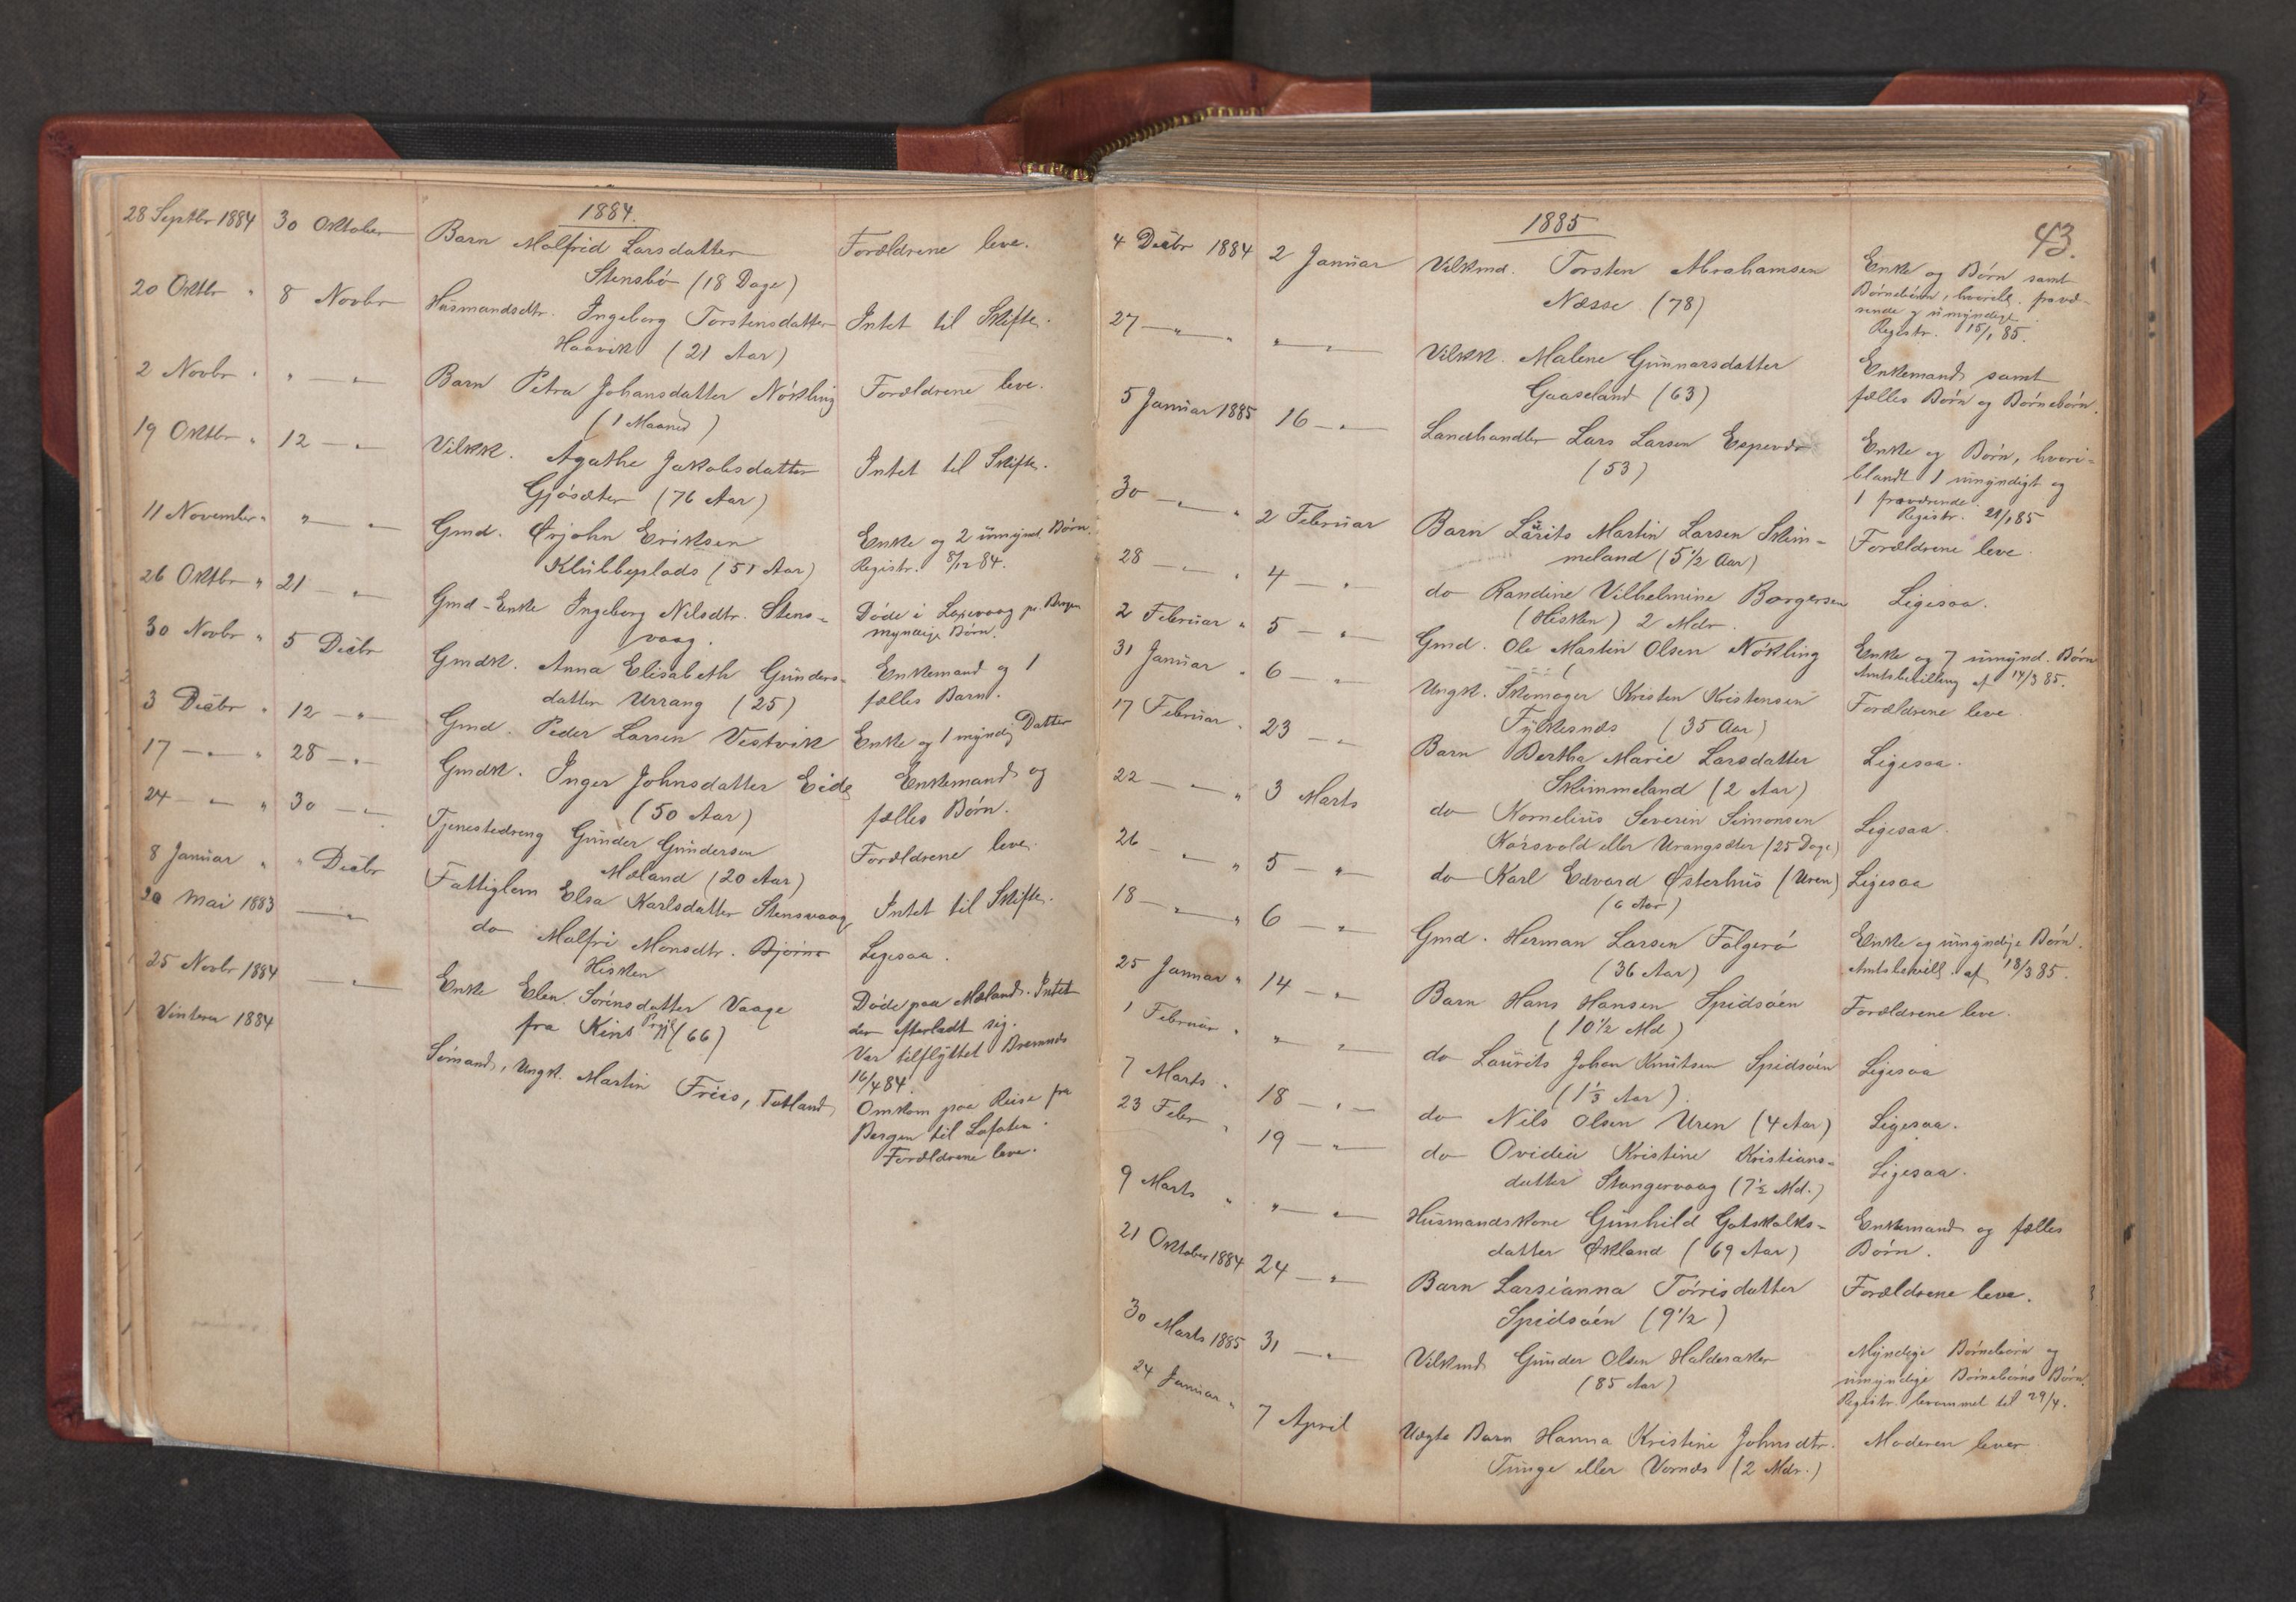 1884.
28 Septbr 1884 30 Oktober Barn Malfrid Larsdatter Forældrene leve.
Stensbø (18 Dage)
20 Oktbr " 8 Novbr Husmandsdtr. Ingeborg Torstensdatter Intet til Skifte.
Haavik (21 Aar)
2 Novbr " " — " — Barn Petra Johansdatter Nøkling Forældrene leve.
(1 Maaned)
19 Oktbr " 12 — " — Vilkk. Agathe Jakobsdatter Intet til Skifte.
Gjøsæter (76 Aar)
11 November " " — " — Gmd. Ørjohn Eriksen Enke og 2 umynd. Børn.
Klubbeplads (51 Aar) Registr. 8/12 84.
26 Oktbr " 21 — " — Gmd-Enke Ingeborg Nilsdtr. Stens- Døde i Laxevaag pr. Bergen
vaag. myndige Børn.
30 Novbr " 5 Decbr Gmdk. Anna Elisabeth Gunders- Enkemand og 1
datter Urrang (25) fælles Barn.
3 Decbr " 12 — " — Gmd. Peder Larsen Vestvik Enke og 1 myndig Datter
17 — " — " 28 — " — Gmdk. Inger Johnsdatter Eide Enkemand og
(50 Aar) fælles Børn.
24 — " — " 30 — " — Tjenestedreng Gunder Gundersen Forældrene leve.
Mæland (20 Aar)
8 Januar " " Decbr Fattiglem Elsa Karlsdatter Stensvaag Intet til Skifte.
20 Mai 1883 — " — do Malfri Monsdtr. Bjørns Ligesaa.
Hisken
25 Novbr 1884 — " — Enke Elen Sørensdatter Vaage Døde paa Mæland. Intet
fra Kins Prgj (66) der efterladt sig.
Var tilflyttet Bremnes
16/4 84.
Vinteren 1884 Sømand, Ungk. Martin Friis, Totland, Omkom paa Reise fra
Bergen til Lofoten.
Forældrene leve.
43.
1885
4 Decbr 1884 2 Januar Vilkmd. Torsten Abrahamsen Enke og Børn samt
Næsse (78) Børnebørn, hvoribl. fravæ-
rende og umyndige.
Registr. 15/1 85.
27 — " — " " — " — Vilkk. Malene Gunnarsdatter Enkemand samt
Gaaseland (63) fælles Børn og Børnebørn.
5 Januar 1885 16 — " — Landhandler Lars Larsen Espevær Enke og Børn, hvori-
(53) blandt 1 umyndigt og
1 fraværende.
Registr. 21/1 85
30 — " — " 2 Februar Barn Laurits Martin Larsen Skim- Forældrene leve.
meland (5 1/2 Aar)
28 — " — " 4 — " — do Randine Vilhelmine Borgersen Ligesaa.
(Hisken) 2 Mdr.
2 Februar " 5 — " — Gmd. Ole Martin Olsen Nøkling Enke og 7 umynd. Børn
Amtsbevilling af 14/3 85.
31 Januar " 6 — " — Ungk. Skomager Kristen Kristensen Forældrene leve.
Fylkesnæs (35 Aar)
17 Februar " 23 — " — Barn Bertha Marie Larsdatter Ligesaa.
Skimmeland (2 Aar)
22 — " — " 3 Marts do Kornelius Severin Simonsen Ligesaa.
Korsvold eller Urangsæter (25 Dage)
26 — " — " 5 — " — do Karl Edvard Østerhus (Uren) Ligesaa
(6 Aar)
18 — " — " 6 — " — Gmd. Herman Larsen Folgerø Enke og umyndige Børn.
(36 Aar) Amtsbevill. af 18/3 85.
25 Januar " 14 — " — Barn Hans Hansen Spidsøen Forældrene leve.
(10 1/2 Md)
1 Februar " " — " do Laurits Johan Knutsen Spidsøen Ligesaa
(1 1/3 Aar)
7 Marts " 18 — " — do Nils Olsen Uren (4 Aar) Ligesaa.
23 Febr " 19 — " — do Ovidia Kristine Kristians- Ligesaa.
datter Stangervaag (7 1/2 Md.)
9 Marts " " — " — Husmandskone Gunhild Gotskalks- Enkemand og fælles
datter Økland (69 Aar) Børn.
21 Oktober 1884 24 — " — Barn Larsianna Tørrisdatter Forældrene leve.
Spidsøen (9 1/2)
30 Marts 1885 31 — " — Vilkmd Gunder Olsen Halderaker Myndige Børnebørn og
(85 Aar) umyndige Børnebørns Børn.
Registr. berammet til 29/4.
24 Januar " 7 April Uægte Barn Hanna Kristine Johnsdtr. Moderen lever
Tunge eller Vernæs (2 Mdr.)